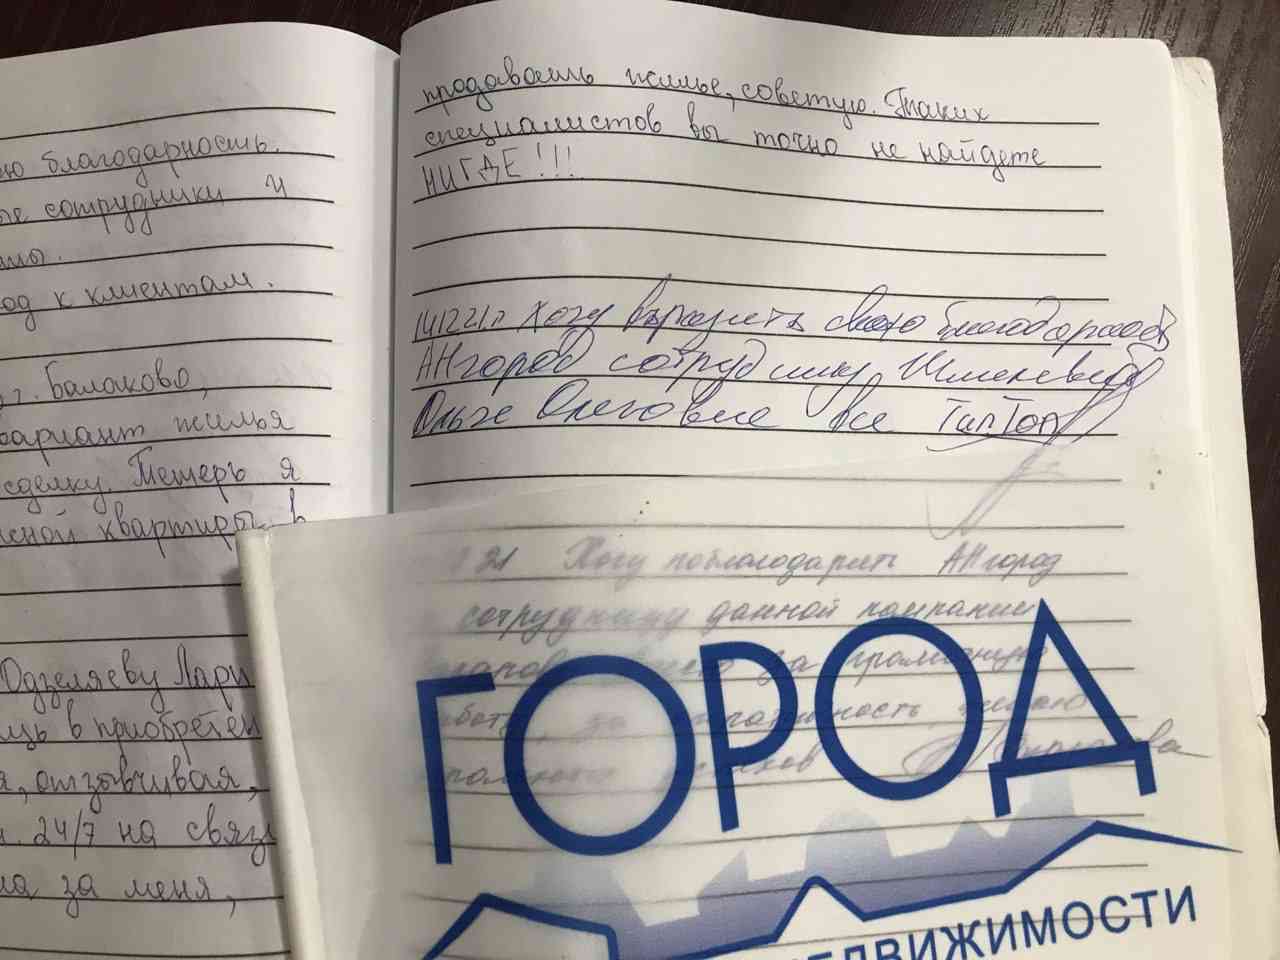 благодарность.
сотрудники и
од к клиентам.
г. Балаково,
вариант жилья
сделку. Теперь я
сной квартиры в
Одзеляеву Лари
щь в приобретен
я, отзывчивая,
24/7 на связ
за меня,
продавать жилье, советую. Таких
специалистов вы точно не найдете
НИГДЕ!!!
141221г Хочу выразить свою благодарность
АНгород сотруднику
Ольге Олеговне все ТипТоп
21 Хочу поблагодарить АНгород
сотрудницу данной компании
за грамотную
ГОРОД
ЕДВИЖИМОСТИ